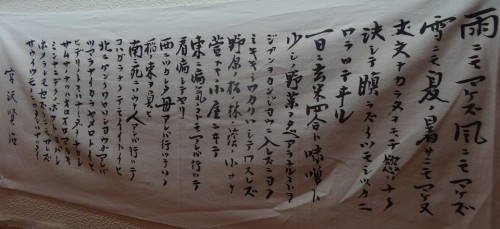 雨ニモマケズ風ニモマケズ
雪ニモ夏ノ暑サニモマケヌ
丈夫ナカラダヲモチ慾ハナク
決シテ瞋ラズイツモシヅカニ
ワラッテヰル
一日ニ玄米四合ト味噌ト
少シノ野菜ヲタベアラユルコトヲ
ジブンヲカンジョウニ入レズニヨク
ミキキシワカリソシテワスレズ
野原ノ松ノ林ノ蔭ノ小サナ
萱ブキノ小屋ニヰテ
東ニ病気ノコドモアレバ行ッテ
看病シテヤリ
西ニツカレタ母アレバ行ッテソノ
稲ノ束ヲ負ヒ
南ニ死ニサウナ人アレバ行ッテ
コハガラナクテモイヽトイヒ
北ニケンクヮヤソショウガアレバ
ツマラナイカラヤメロトイヒ
ヒデリノトキハナミダヲナガシ
サムサノナツハオロオロアルキ
ミンナニデクノボートヨバレ
ホメラレモセズクニモサレズ
サウイウモノニ
宮沢賢治